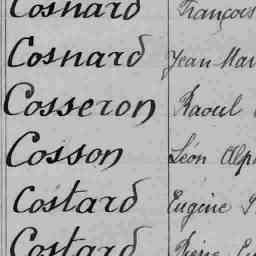 Cosnard François
Cosnard Jean Mar
Cosseron Raoul
Cosson Léon Alp
Costard Eugène
Costard